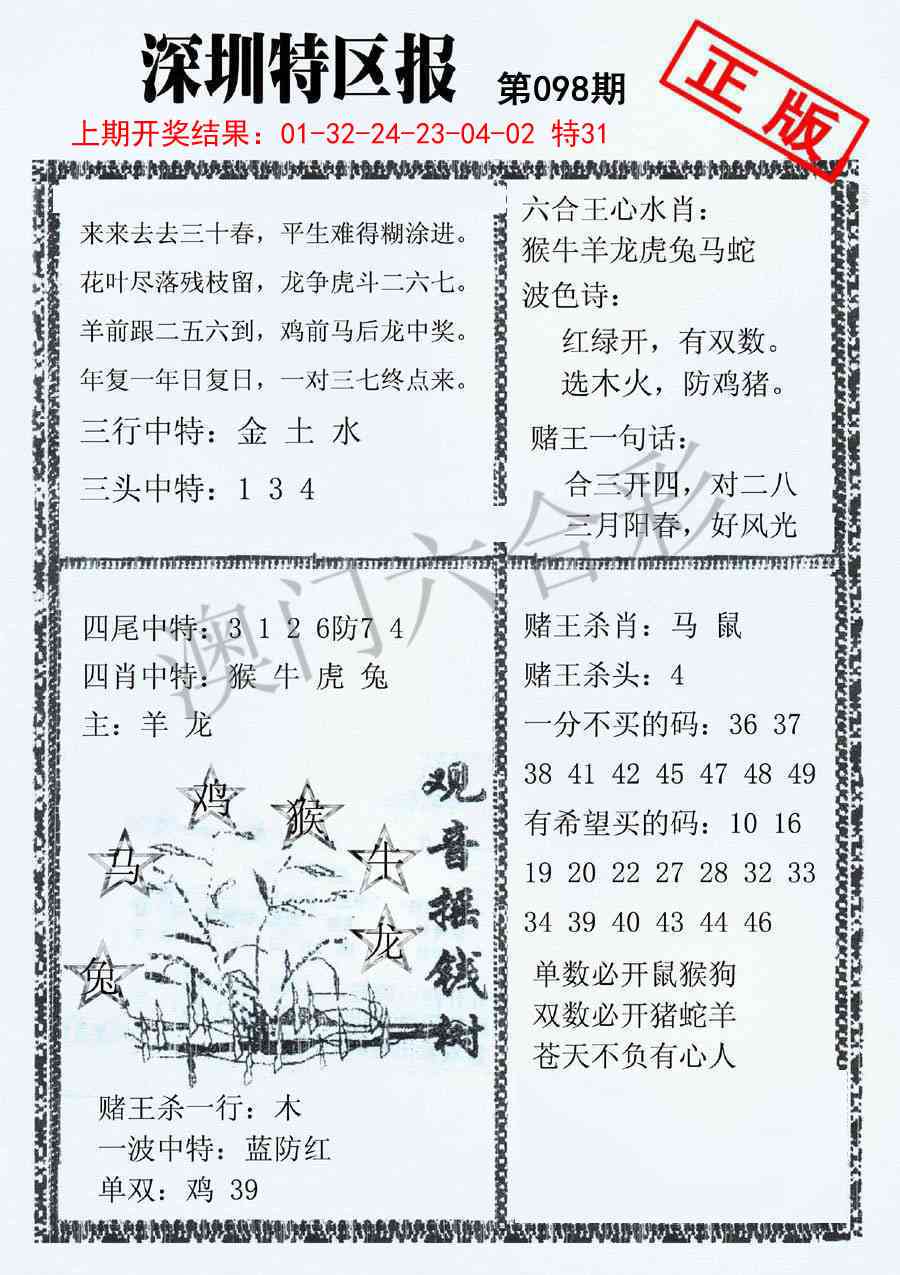 深圳特区报 第098期
正版
上期开奖结果：01-32-24-23-04-02 特31
来来去去三十春，平生难得糊涂进。
花叶尽落残枝留，龙争虎斗二六七。
羊前跟二五六到，鸡前马后龙中奖。
年复一年日复日，一对三七终点来。
三行中特：金 土 水
三头中特：1 3 4
六合王心水肖：
猴牛羊龙虎兔马蛇
波色诗：
红绿开，有双数。
选木火，防鸡猪。
赌王一句话：
合三开四，对二八
三月阳春，好风光
澳门六合彩
四尾中特：3 1 2 6防7 4
四肖中特：猴 牛 虎 兔
主：羊 龙
鸡
猴
马
牛
龙
兔
观音摇钱树
赌王杀一行：木
一波中特：蓝防红
单双：鸡 39
赌王杀肖：马 鼠
赌王杀头：4
一分不买的码：36 37
38 41 42 45 47 48 49
有希望买的码：10 16
19 20 22 27 28 32 33
34 39 40 43 44 46
单数必开鼠猴狗
双数必开猪蛇羊
苍天不负有心人